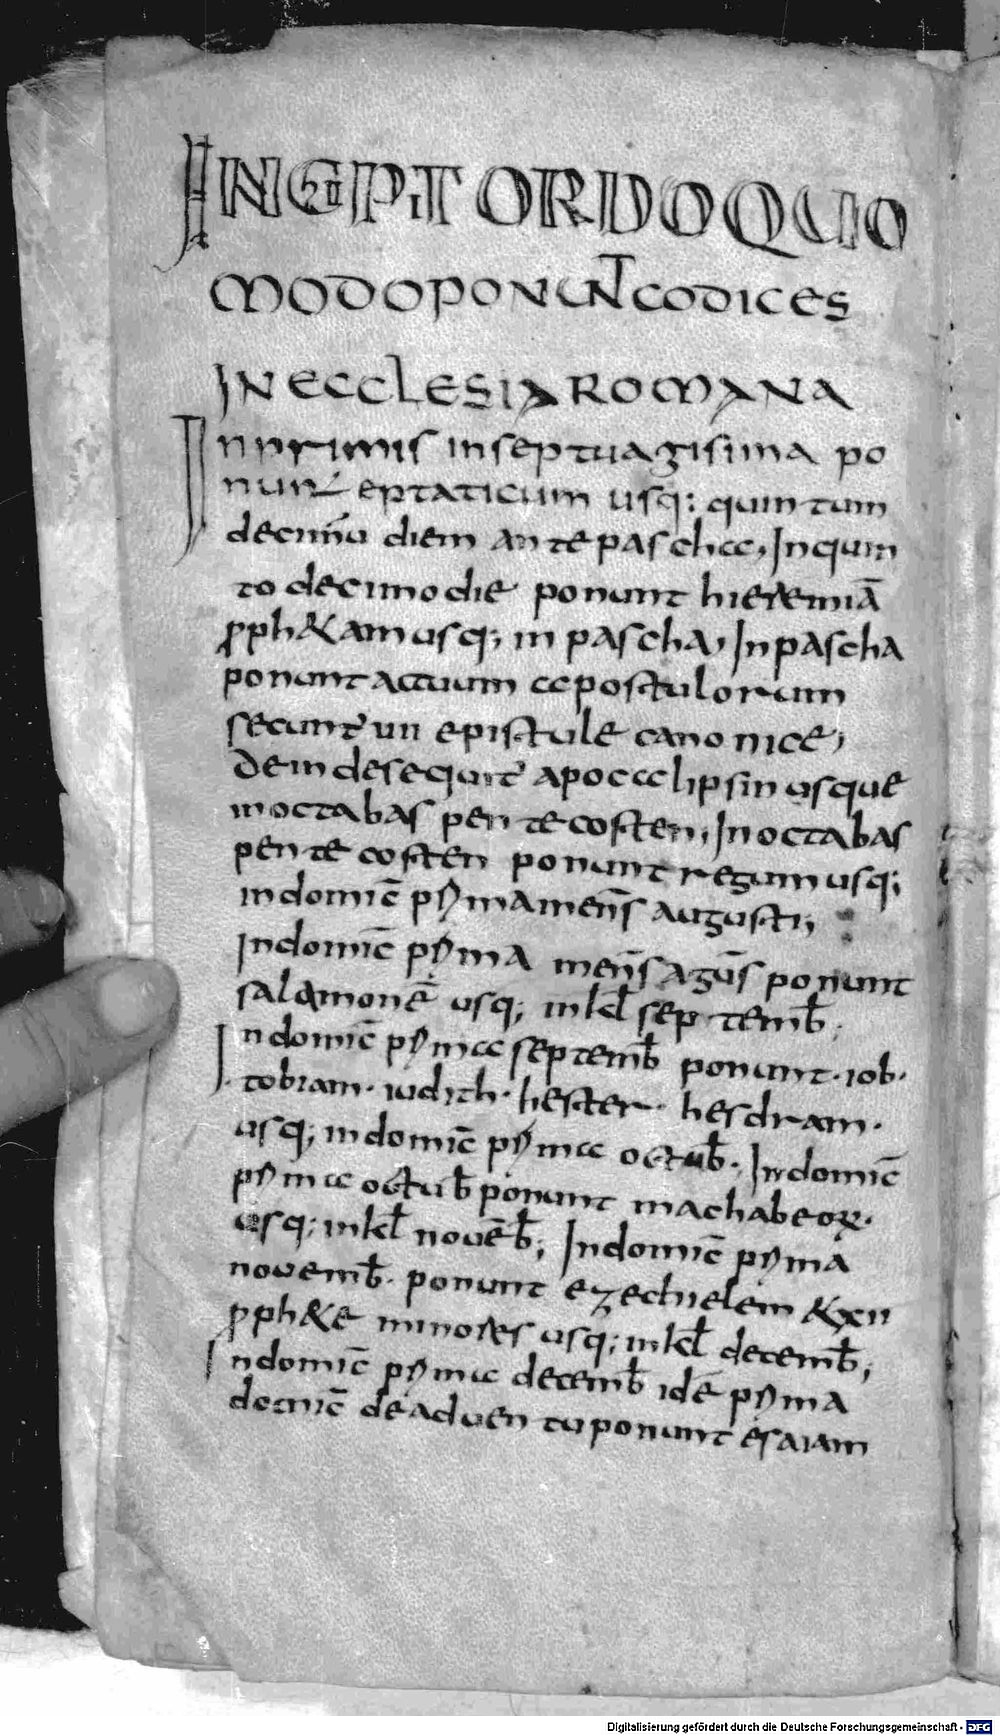 INCIPIT ORDO QUO
MODO PONUNT CODICES
IN ECCLESIA ROMANA
Inprimis in septuagisima po
nunt eptaticum usq: quintum
decimū diem ante pascha, In quin
to decimo die ponunt hieremiā
ꝓph&am usq; in pascha, In pascha
ponunt actuum apostulorum
secunt̄ uii epistule canonice,
Deinde sequit̄ apocalipsin usque
in octabas pentecosten, In octabas
pentecosten ponunt regum usq;
in domic̄ pꝛima mens̄ augusti;
In domic̄ pꝛima mens̄ agūs ponunt
salamonē usq; in kƚ septemƀ;
In domic̄ pꝛima septemƀ ponunt · iob ·
tobiam · iudith · hester · hesdram ·
usq; in domic̄ pꝛima octubƀ · In domic̄
pꝛima octubƀ ponunt machabeoꝝ ·
usq; in kƚ novēƀ; In domic̄ pꝛima
novemƀ · ponunt ezechielem & xii
ꝓph&e minores usq; in kƚ decemƀ;
In domic̄ pꝛima decemƀ idē pꝛima
domic̄ de adventu ponunt esaiam
Digitalisierung gefördert durch die Deutsche Forschungsgemeinschaft - DFG